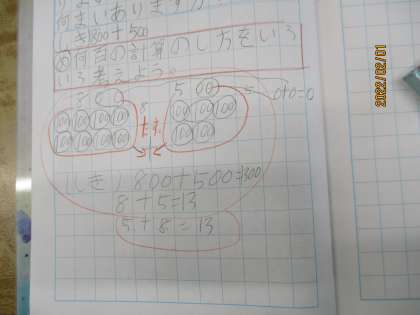 何まいありますか
しき800+500
め何百の計算のしかたをいろ
いろ考えよう。
800 500 0+0=0
100 100 100 100 100 100 100
100 100 100 100 100 100
たす
しき)800+500=1300
8+5=13
5+8=13
2022/02/01